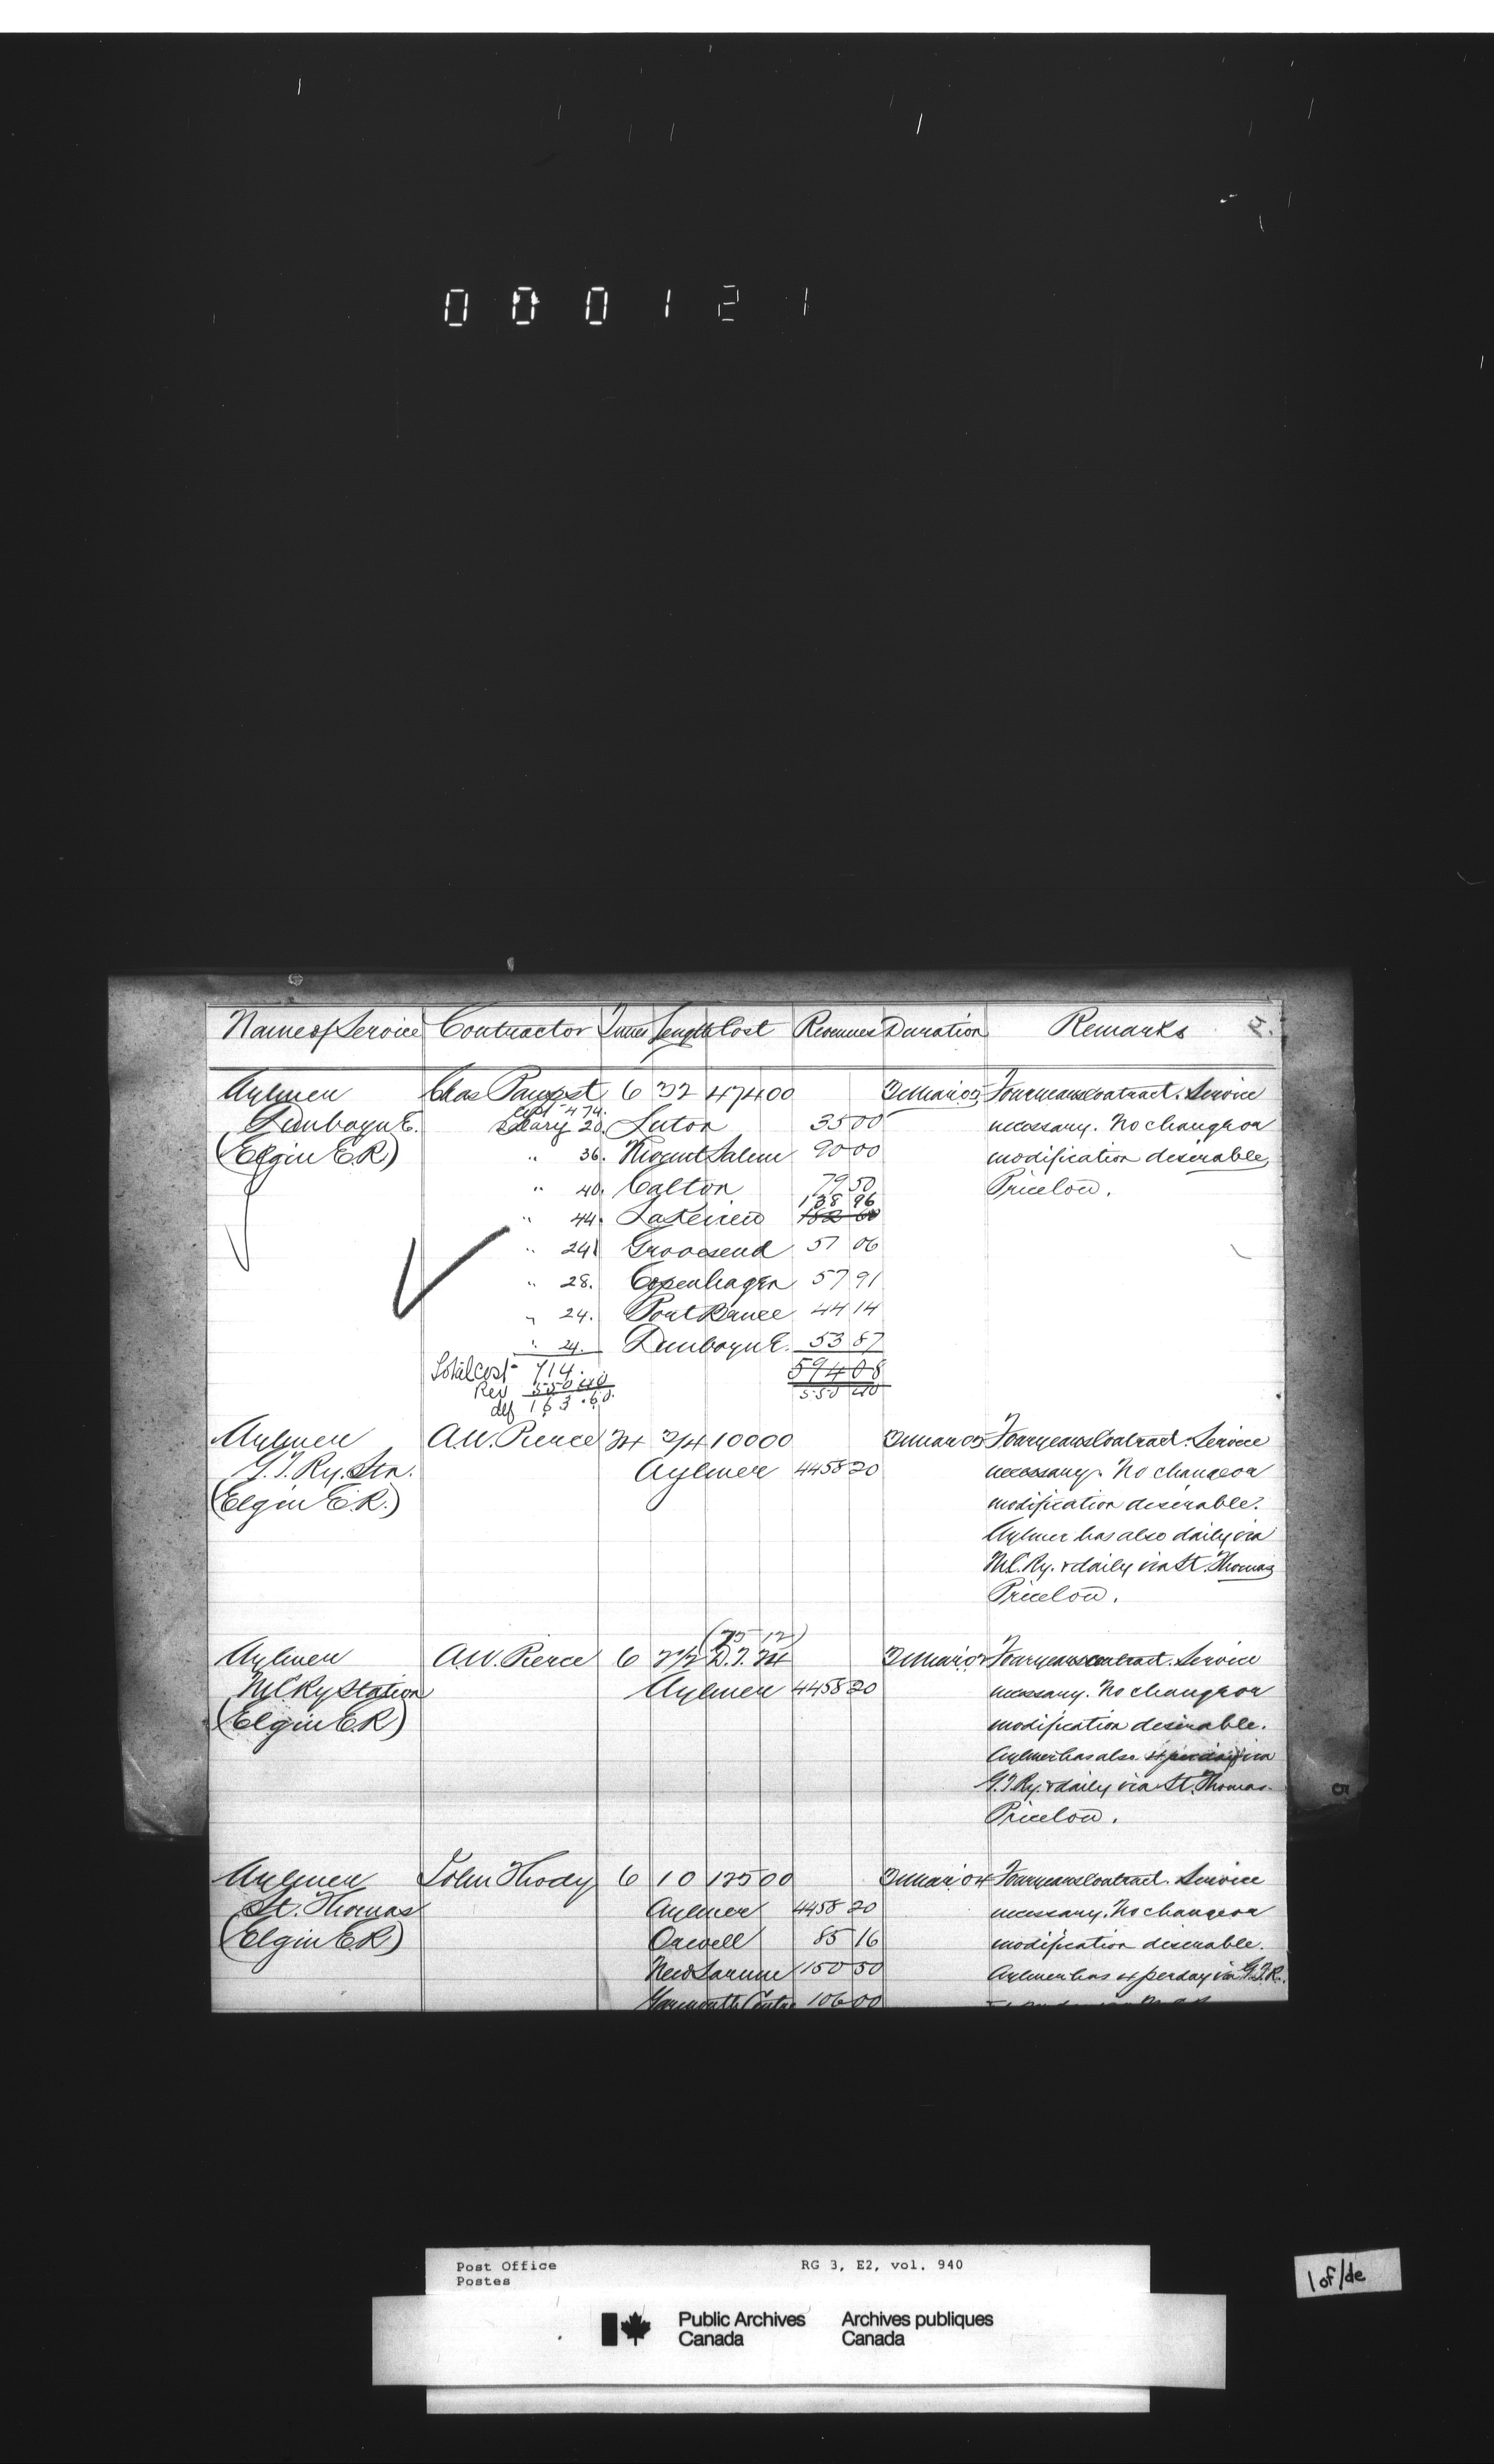 000121
Name of Service Contractor Times Length Cost Revenues Duration Remarks 5.
Aylmer Chas 6 32 474 00 Four years contract. Service
Cost 474.
Dunboyne. Salary 20. Luton 35 00 necessary. No change or
(Elgin E.R) " 36. Mount Salem 90 00 modification desirable,
" 40. Calton 79 50 Price low.
138 96
" 44. Lakeview
" 24. Grovesend 57 06
" 28. Copenhagen 57 91
" 24. Port Bruce 44 14
" 24. Dunboyne. 53 87
Total Cost 714. 594 08
Rev 550.40 550 40
def 163.60
Aylmer A.W. Pierce 24 3/4 100 00 Four years Contract. Service
G.T. Ry. Stn. Aylmer 4458 20 necessary. No change or
(Elgin E.R.) modification desirable.
Aylmer has also daily via
M.C. Ry. & daily via St. Thomas
Price low.
(75 12)
Aylmer A.W. Pierce 6 2 1/2 D.T. 24 Four years contract. Service
M C Ry Station Aylmer 4458 20 necessary. No change or
(Elgin E.R) modification desirable.
Aylmer has also 4 per day via
G.T. Ry. & daily via St. Thomas.
Price low.
Aylmer John Thody 6 10 125 00 31 Mar 04 Four years Contract. Service
St. Thomas Aylmer 4458 20 necessary. No change or
(Elgin E.R) Orwell 85 16 modification desirable.
New Sarum 150 50 Aylmer has 4 per day via G.T.R.
Yarmouth Centre 106 00
5
Post Office RG 3, E2, vol. 940
Postes
Public Archives Archives publiques
Canada Canada
1 of/de